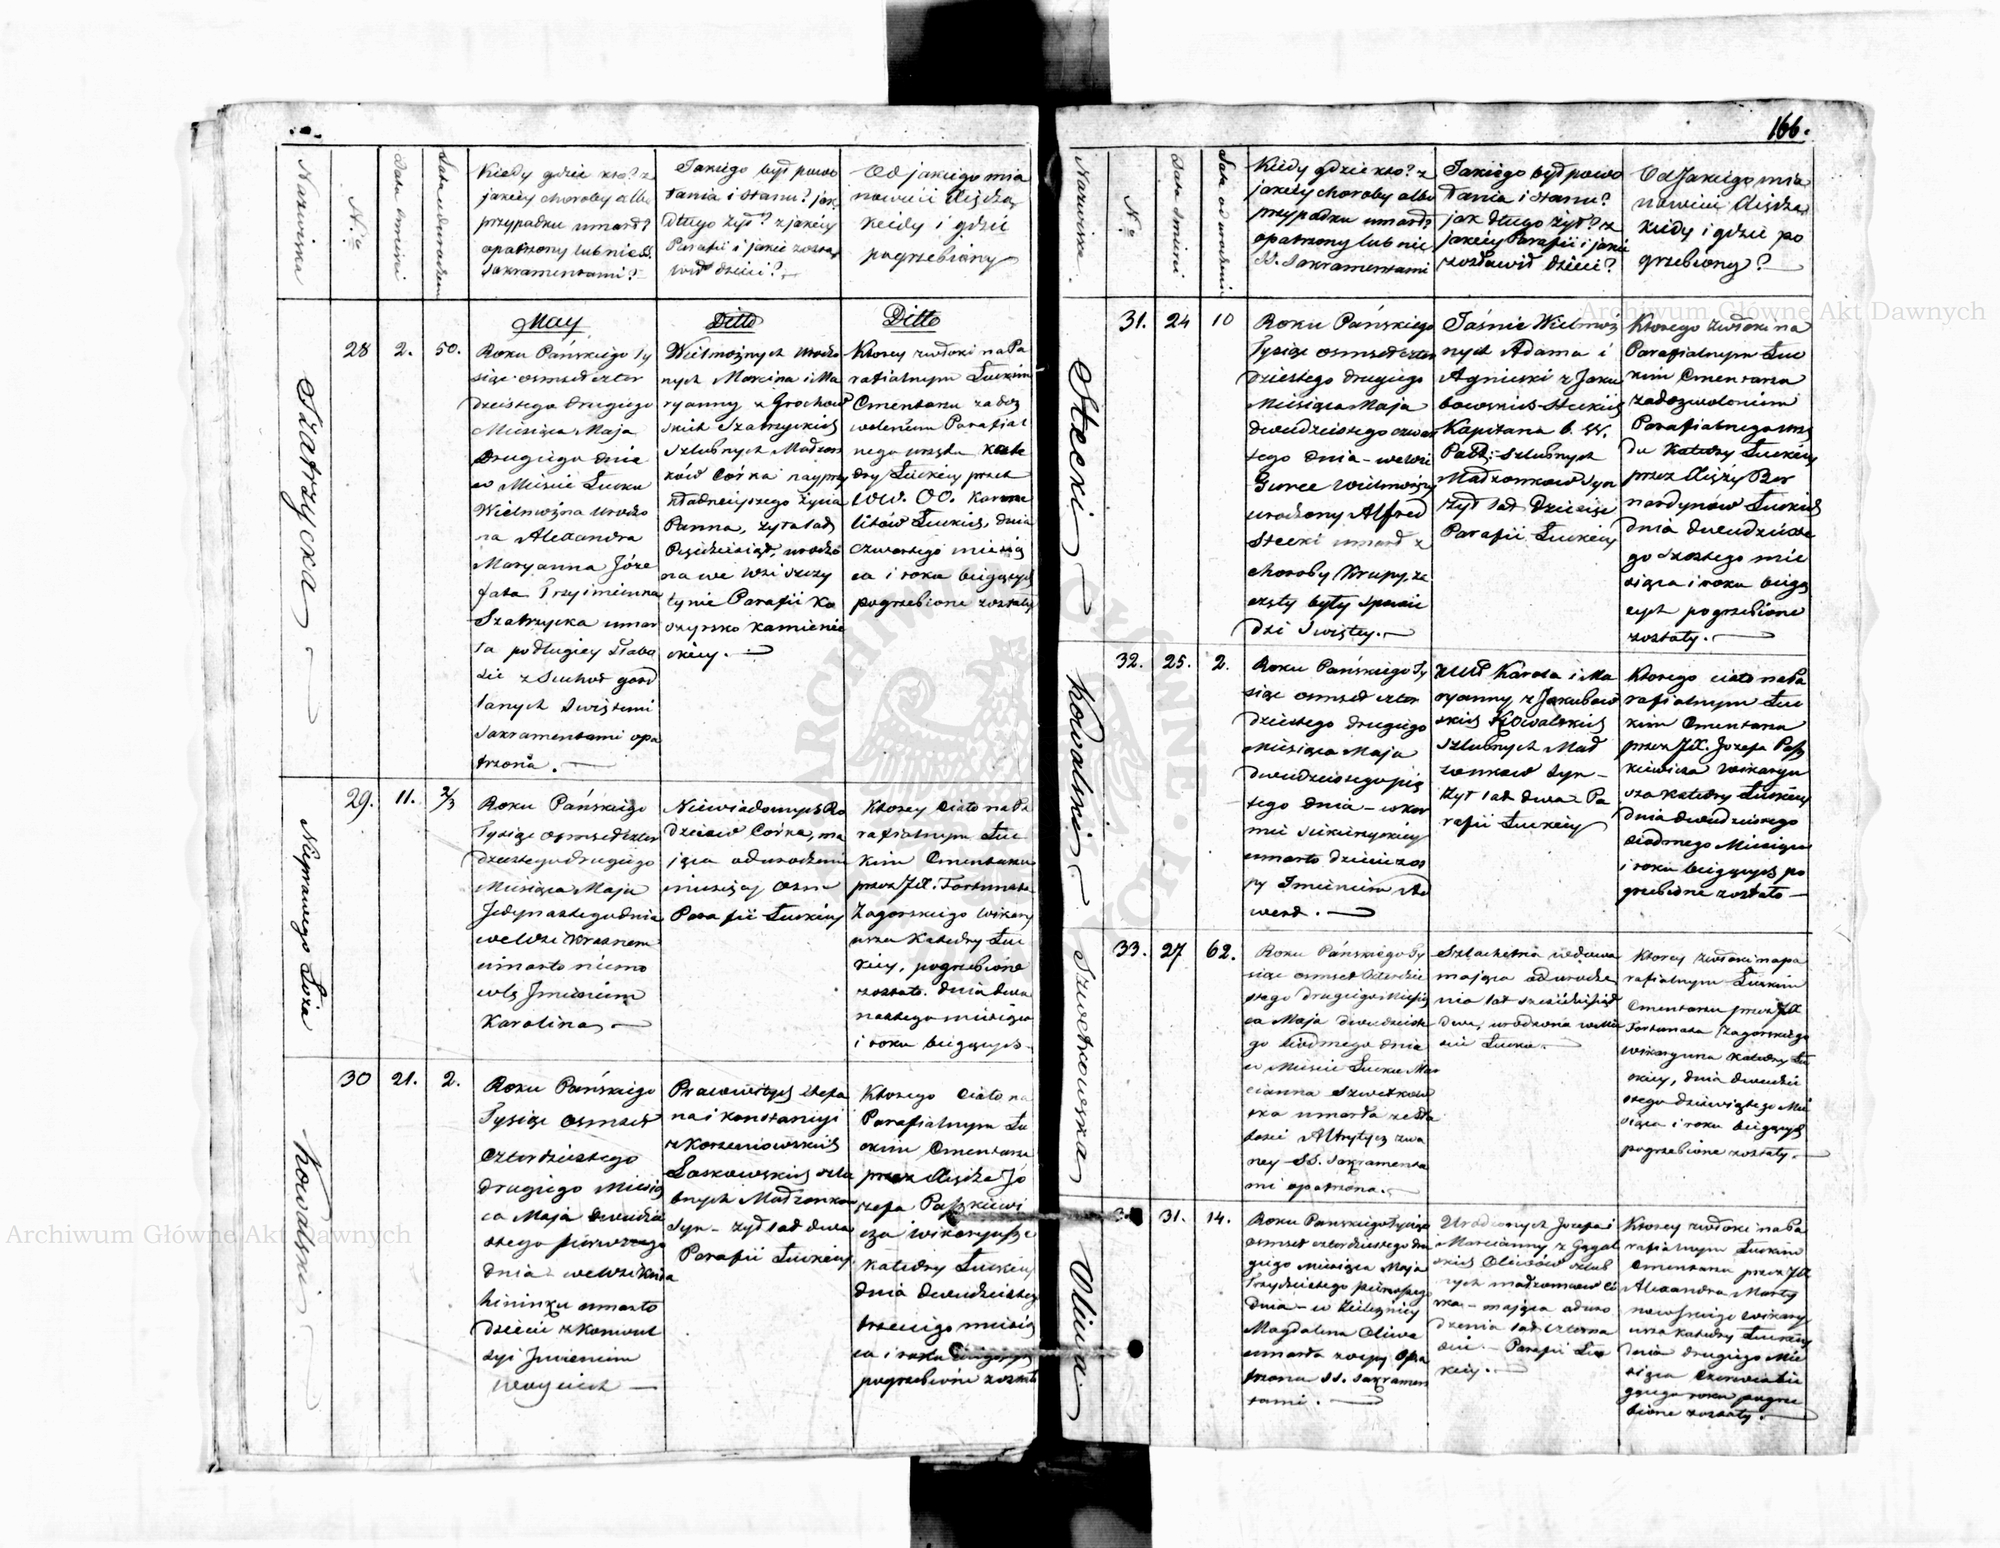 166.
Nazwiska
N.o
Data śmierci
Lata od urodzenia
Kiedy gdzie kto? z
jakiéy choroby albo
przypadku umarł?
opatrzony lub nie SS.
Sakramentami?
Jakiego był powo
łania i stanu? jak
długo żył? z jakiéy
Parafii i jakie zosta
wił dzieci?
Od jakiego mia
nowicie Xiędza
kiedy i gdzie
pogrzebiony
May
Ditto
Ditto
Szatrzycka
28
2.
50.
Roku Pańskiego Ty
siąc osmset czter
dziestego drugiego
Miesiąca Maja
Drugiego dnia
w Mieście Łucku
Wielmożna urodzo
na Alexandra
Maryanna Józe
fata Trzyimienna
Szatrzycka umar
ła po długiey słabo
ści z Suchot gard
lanych Swiętemi
Sakramentami opa
trzona.
Wielmożnych Urodzo
nych Marcina i Ma
ryanny z Grochow
skich Szatrzyckich
szlubnych Małżon
ków Córka nayprzy
kładnieyszego życia
Panna, żyła lat
Pięćdziesiąt, urodzo
na we Wsi Szczy
tynie Parafii Ko
szyrsko Kamienie
ckiey.
Ktorey zwłoki na Pa
rafialnym Łuckim
Cmentarzu za doz
woleniem Parafial
nego urzędu Kate
dry Łuckiey przez
WW. OO. Karme
litów Łuckich, dnia
czwartego miesią
ca i roku bieżących
pogrzebione zostały
Nieprawego Łoża
29.
11.
2/3
Roku Pańskiego
Tysiąc osmset czter
dziestego drugiego
Miesiąca Maja
Jedynastego dnia
we Wsi Krasnem
umarło niemo
wlę Jmieniem
Karolina
Niewiadomych Ro
dziców Córka, ma
jąca od urodzenia
miesięcy osm
Parafii Łuckiey
Ktorey ciało na Pa
rafialnym Łuc
kim Cmentarzu
przez JX. Fortunata
Zagorskiego Wikary
usza Katedry Łuc
kiey, pogrzebione
zostało. dnia dwu
nastego miesiąca
i roku bieżących
Kowalski
30
21.
2.
Roku Pańskiego
Tysiąc osmset
czterdziestego
drugiego Miesią
ca Maja dwudzie
stego pierwszego
dnia we Wsi Knia
hininku umarło
dziecie z Konwul
syi Jmieniem
Woyciech
Prawowitych Stefa
na i Konstancyi
z Korzeniowskich
Laskowskich szlu
bnych Małżonków
Syn żył lat dwa
Parafii Łuckiey
Ktorego ciało na
Parafialnym Łu
ckim Cmentarzu
przez Xiędza Jó
zefa Paszkiewi
cza Wikaryusze
Katedry Łuckiey
dnia dwudziestego
trzeciego miesią
ca i roku bieżących
pogrzebione zostało
Nazwiska
N.o
Data śmierci
Lata od urodzenia
Kiedy gdzie kto? z
jakiéy choroby albo
przypadku umarł?
opatrzony lub nie
SS. Sakramentami
Jakiego był powo
łania i stanu?
jak długo żył? z
jakiéy Parafii i jakie
zostawił dzieci?
Od Jakiego mia
nowicie Xiędza
kiedy i gdzie po
grzebiony?
Stecki
31.
24
10
Roku Pańskiego
Tysiąc osmset czter
dziestego drugiego
Miesiąca Maja
dwudziestego czwar
tego dnia we Wsi
Gurce Wielmożny
urodzony Alfred
Stecki umarł z
choroby Krupy, ze
częty były Spowie
dzi Swiętey.
Jaśnie Wielmoż
nych Adama i
Agnieszki z Jaku
bowskich Steckich
Kapitana b. W.
Pol: szlubnych
Małżonków Syn
żył lat Dziesięć
Parafii Łuckiey
Ktorego zwłoki na
Parafialnym Łuc
kim Cmentarzu
za dozwoleniem
Parafialnego urzę
du Katedry Łuckiey
przez Xięży Ber
nardynów Łuckich
dnia dwudzieste
go szóstego mie
siąca i roku bieżą
cych pogrzebione
zostały.
Kowalski
32.
25.
2.
Roku Pańskiego Ty
siąc osmset czter
dziestego drugiego
Miesiąca Maja
dwudziestego pią
tego dnia w Kor
mie
umarło dziecie z os
py Jmieniem Ed
ward.
Karola i Ma
ryanny z Jakubow
skich Kowalskich
szlubnych Mał
żonków Syn
żył lat dwa Pa
rafii Łuckiey
Ktorego ciało na Pa
rafialnym Łuc
kim Cmentarzu
przez JX. Jozefa Pasz
kiewicza Wikaryu
sza Katedry Łuckiey
dnia dwudziestego
siodmego Miesiąca
i roku bieżących po
grzebione zostało
Szwetkowska
33.
27
62.
Roku Pańskiego Ty
siąc osmset czterdzie
stego drugiego Miesią
ca Maja dwudzieste
go siodmego dnia
w Mieście Łucku Mar
cianna Szwetkow
ska umarła ze sła
bości Artrytycz zwa
ney SS. Sakramenta
mi opatrzona.
Szlachetna wdowa
mająca od urodze
nia lat sześćdziesiąt
dwa, urodzona w Mie
ście Łucku.
Ktorey zwłoki na pa
rafialnym Łuckim
Cmentarzu przez JX
Fortunata Zagorskiego
Wikaryusza Katedry Łu
ckiey, dnia dwudzie
stego dziewiątego Mie
siąca i roku bieżących
pogrzebione zostały.
Oliwa
31.
14.
Roku Pańskiego Tysiąc
osmset czterdziestego dru
giego Miesiąca Maja
Trzydziestego pierwszego
dnia w Zielenicy
Magdalena Oliwa
umarła z ospy Opa
trzona SS. Sakramen
tami.
Urodzonych Jozefa i
Marcianny z Gągal
skich Oliwów szlub
nych małżonków có
rka mająca od uro
dzenia lat czterna
ście Parafii Łuc
kiey.
Ktorey zwłoki na Pa
rafialnym Łuckim
Cmentarzu przez JX
Alexandra Marty
nowskiego Wikary
usza Katedry Łuckiey
dnia drugiego Mie
siąca Czerwca bie
żącego roku pogrze
bione zostały.
Archiwum Główne Akt Dawnych
Archiwum Główne Akt Dawnych
ARCHIWUM GŁÓWNE